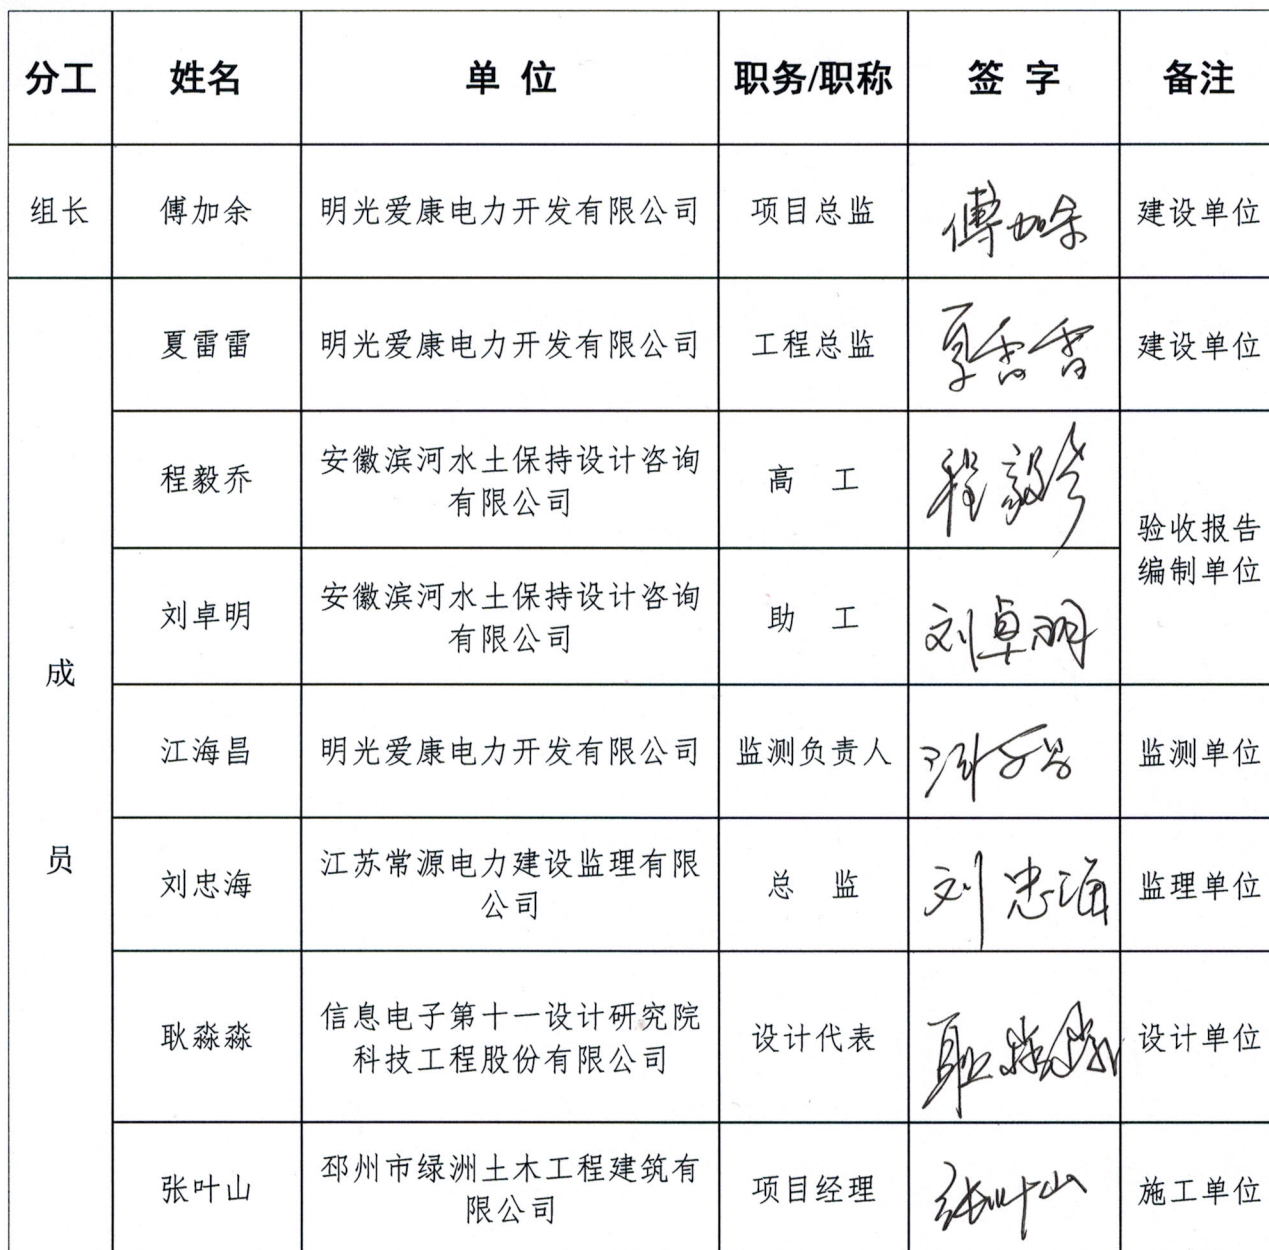 分工 姓名 单 位 职务/职称 签 字 备注
组长 傅加余 明光爱康电力开发有限公司 项目总监 傅加余 建设单位
夏雷雷 明光爱康电力开发有限公司 工程总监 夏雷雷 建设单位
程毅乔 安徽滨河水土保持设计咨询
有限公司 高 工 程毅乔
验收报告
编制单位
刘卓明 安徽滨河水土保持设计咨询
有限公司 助 工 刘卓明
成
员
江海昌 明光爱康电力开发有限公司 监测负责人 江海昌 监测单位
刘忠海 江苏常源电力建设监理有限
公司 总 监 刘忠海 监理单位
耿淼淼 信息电子第十一设计研究院
科技工程股份有限公司 设计代表 耿淼淼 设计单位
张叶山 邳州市绿洲土木工程建筑有
限公司 项目经理 张叶山 施工单位